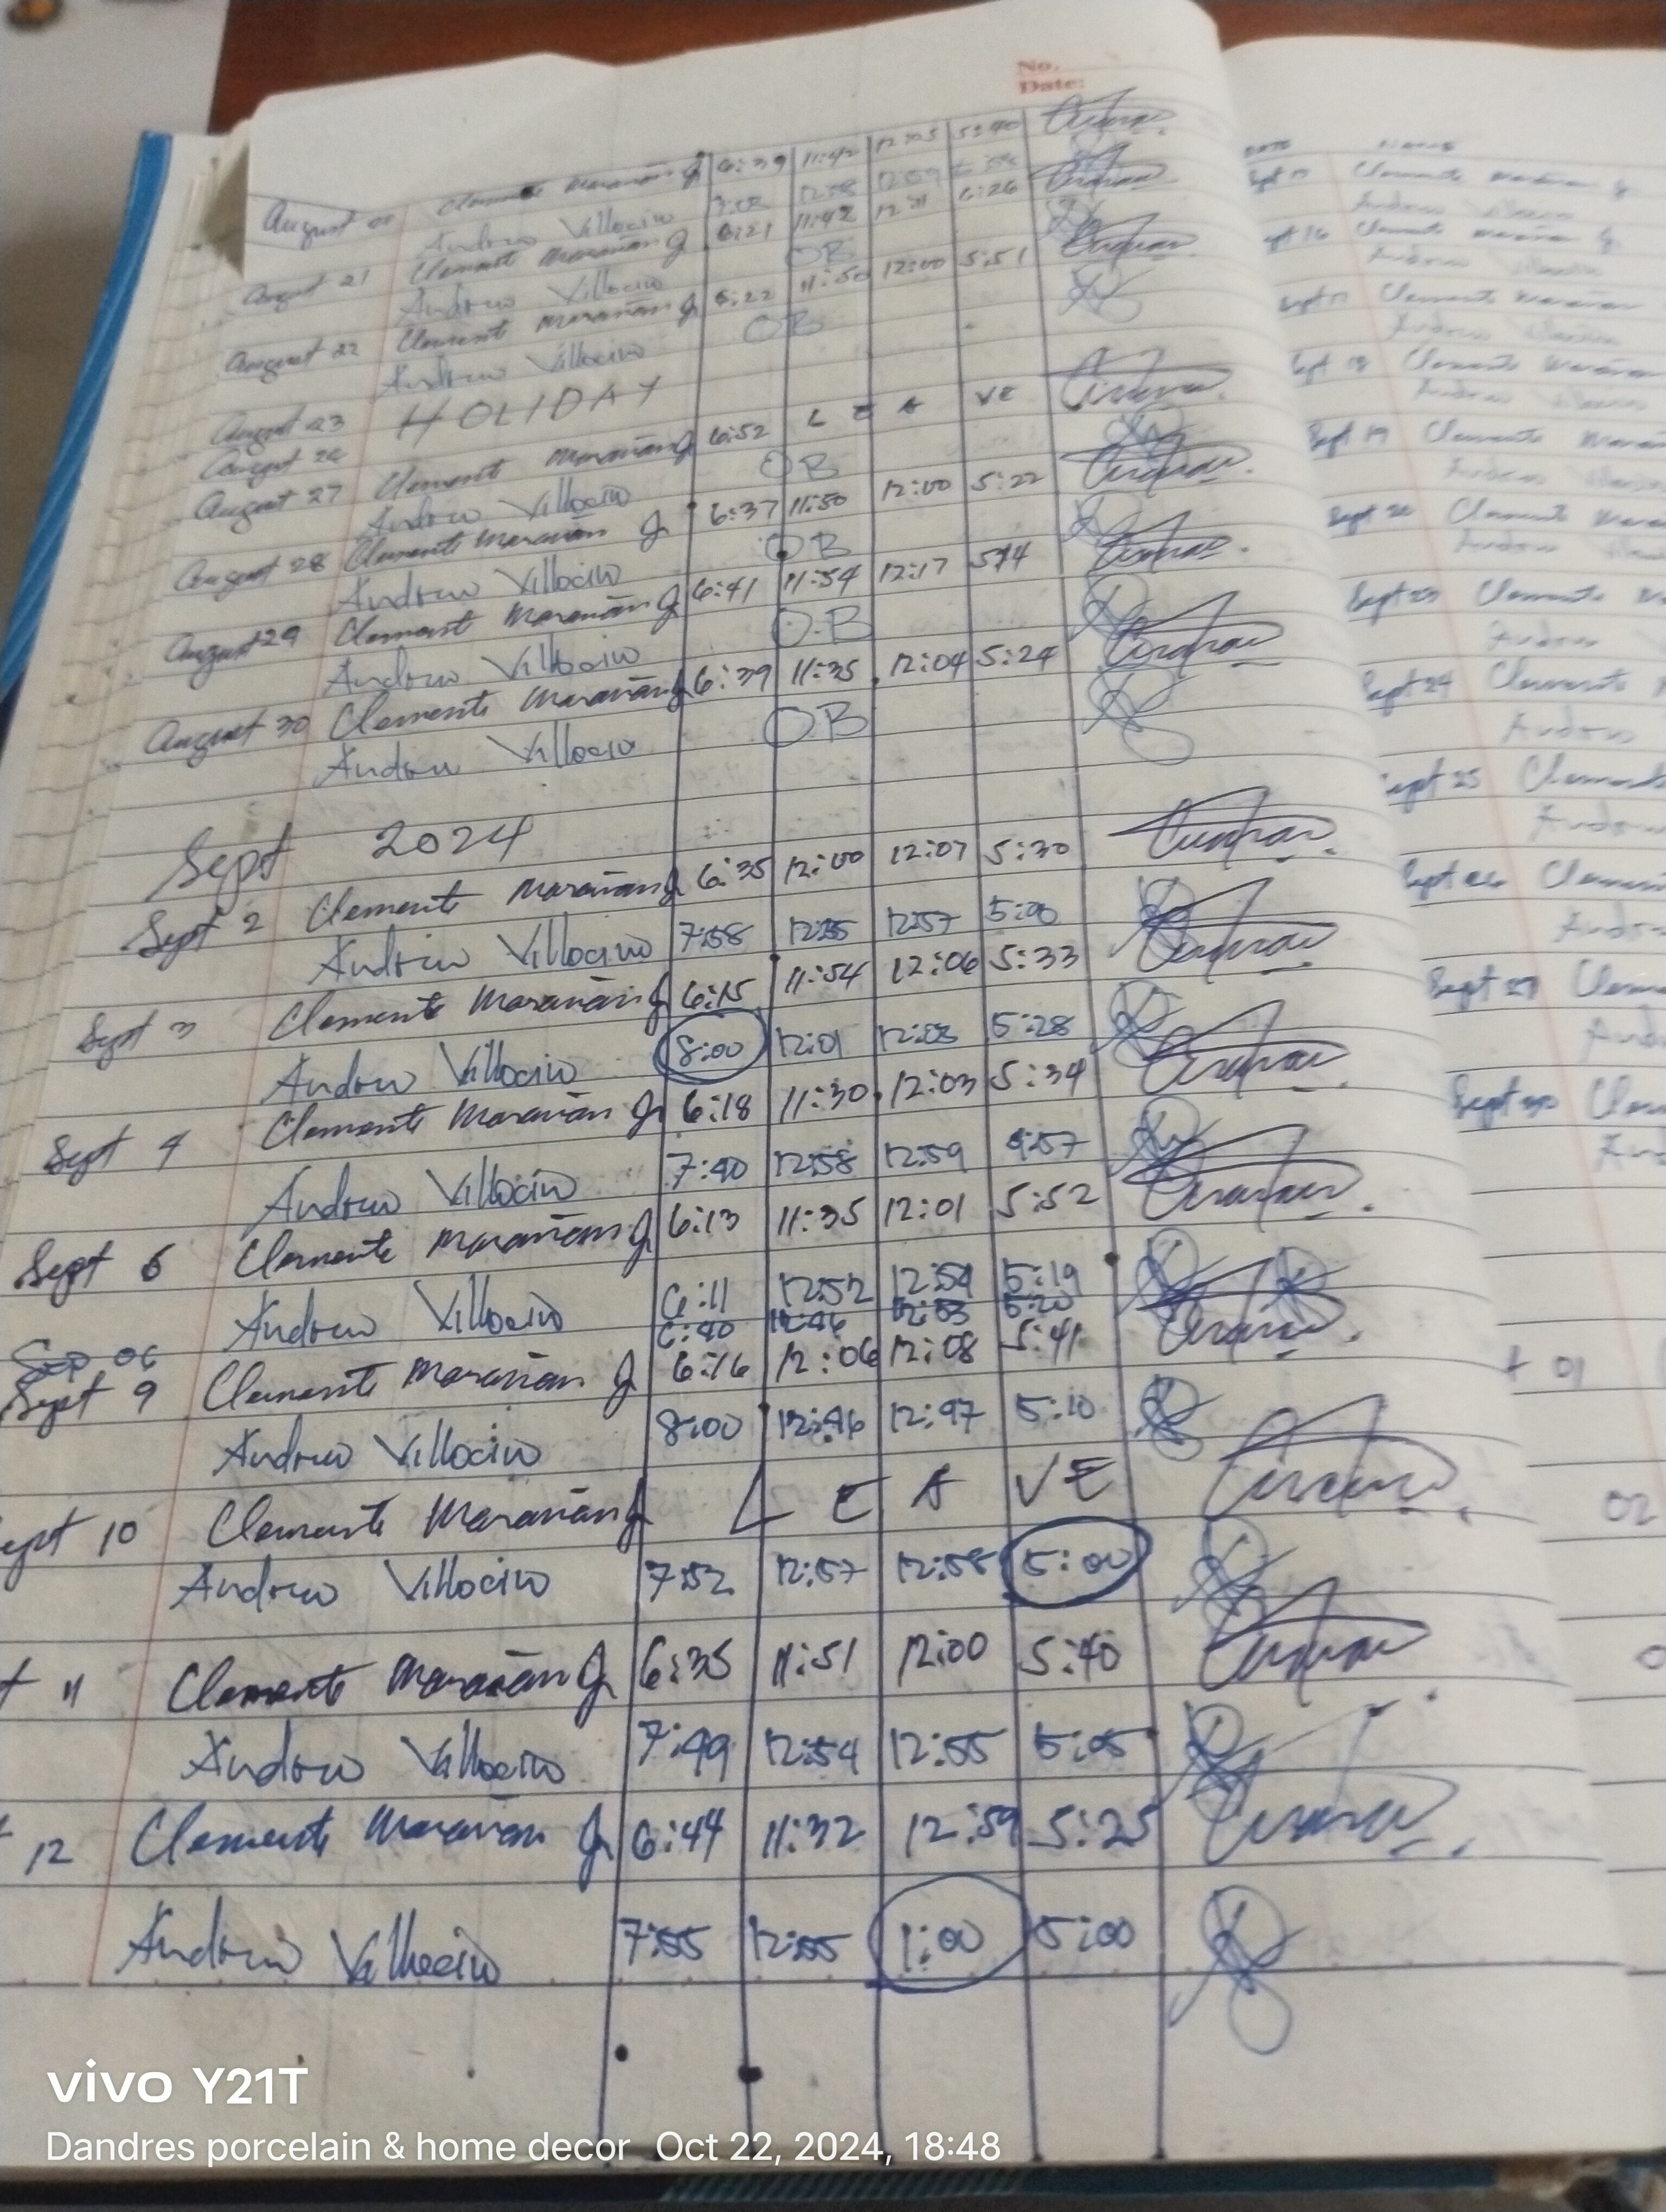 No.
Date:
August Clemente Marañan Jr 6:39 11:42 12:05 5:40
Andrew Villocino
August 21 Clemente Marañan Jr 6:21 11:42 12:11 6:26
Andrew Villocino OB
August 22 Clemente Marañan Jr 6:22 11:50 12:00 5:51
Andrew Villocino OB
August 23 HOLIDAY
August 26
August 27 Clemente Marañan Jr 6:52 L E A VE
Andrew Villocino OB
August 28 Clemente Marañan Jr 6:37 11:50 12:00 5:22
Andrew Villocino OB
August 29 Clemente Marañan Jr 6:41 11:54 12:17 5:14
Andrew Villocino O.B
August 30 Clemente Marañan Jr 6:39 11:35 12:04 5:24
Andrew Villocino OB
Sept 2024
Sept 2 Clemente Marañan Jr 6:35 12:00 12:07 5:30
Andrew Villocino 7:58 12:55 12:57 5:00
Sept 3 Clemente Marañan Jr 6:15 11:54 12:06 5:33
Andrew Villocino 8:00 12:01 12:03 5:28
Sept 4 Clemente Marañan Jr 6:18 11:30 12:03 5:34
Andrew Villocino 7:40 12:58 12:59 4:57
Sept 6 Clemente Marañan Jr 6:13 11:35 12:01 5:52
Andrew Villocino 6:11 12:52 12:54 5:19
Sep 06 6:40 12:46 12:53 5:20
Sept 9 Clemente Marañan Jr 6:16 12:06 12:08 5:41
Andrew Villocino 8:00 12:46 12:47 5:10
ept 10 Clemente Marañan Jr L E A VE
Andrew Villocino 7:52 12:57 12:58 5:00
t 11 Clemente Marañan Jr 6:35 11:51 12:00 5:40
Andrew Villocino 7:49 12:54 12:55 5:05
12 Clemente Marañan Jr 6:44 11:32 12:59 5:25
Andrew Villocino 7:55 12:55 1:00 5:00
DATE NAME
Sept 13 Clemente Marañan Jr
Andrew Villocino
ept 16 Clemente Marañan Jr
Andrew Villocino
Sept 17 Clemente Marañan
Andrew Villocino
Sept 18 Clemente Marañan
Andrew Villocino
Sept 19 Clemente Marañan
Andrew
Sept 20 Clemente
Andrew
Sept 23 Clemente
Andrew
Sept 24 Clemente
Andrew
ept 25 Clemente
Andrew
Sept 26
Sept 27
Sept 30
01
02
vivo Y21T
Dandres porcelain & home decor Oct 22, 2024, 18:48